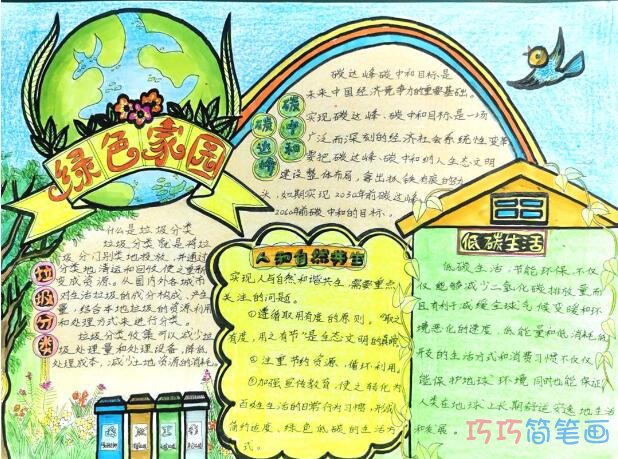 绿色家园
碳达峰
碳中和
碳达峰碳中和目标是
未来中国经济竞争力的重要基础。
实现碳达峰、碳中和目标是一场
广泛而深刻的经济社会系统性变革
要把碳达峰、碳中和纳入生态文明
建设整体布局,拿出抓铁有痕的
头,如期实现2030年前碳达峰、
2060年前碳中和的目标。
垃圾分类
什么是垃圾分类
垃圾分类就是将垃
圾分门别类地投放,并通过
分类地清运和回收,使之重新
变成资源。从国内外各城市
对生活垃圾的成分构成、产生
量,结合本地垃圾的资源利用
和处理方式来进行分类。
垃圾分类收集可以减少垃
圾处理量和处理设备,降低
处理成本,减少土地资源的消耗。
人和自然共生
实现人与自然和谐共生,需要重点
关注的问题。
①遵循取用有度的原则。"取之
有度,用之有节"是生态文明的真谛
②注重节约资源,循环利用。
③加强宣传教育,使之转化为
百姓生活的日常行为习惯,形成
简约适度、绿色低碳的生活方
式。
低碳生活
低碳生活,节能环保,不仅
仅能够减少二氧化碳排放量而
且有利于减缓全球气候变暖和环
境恶化的速度,低能量和低消耗低
开支的生活方式和消费习惯不仅仅
能保护地球环境同时也能保证
人类在地球上长期舒适安逸地生活
和发展。
巧巧简笔画